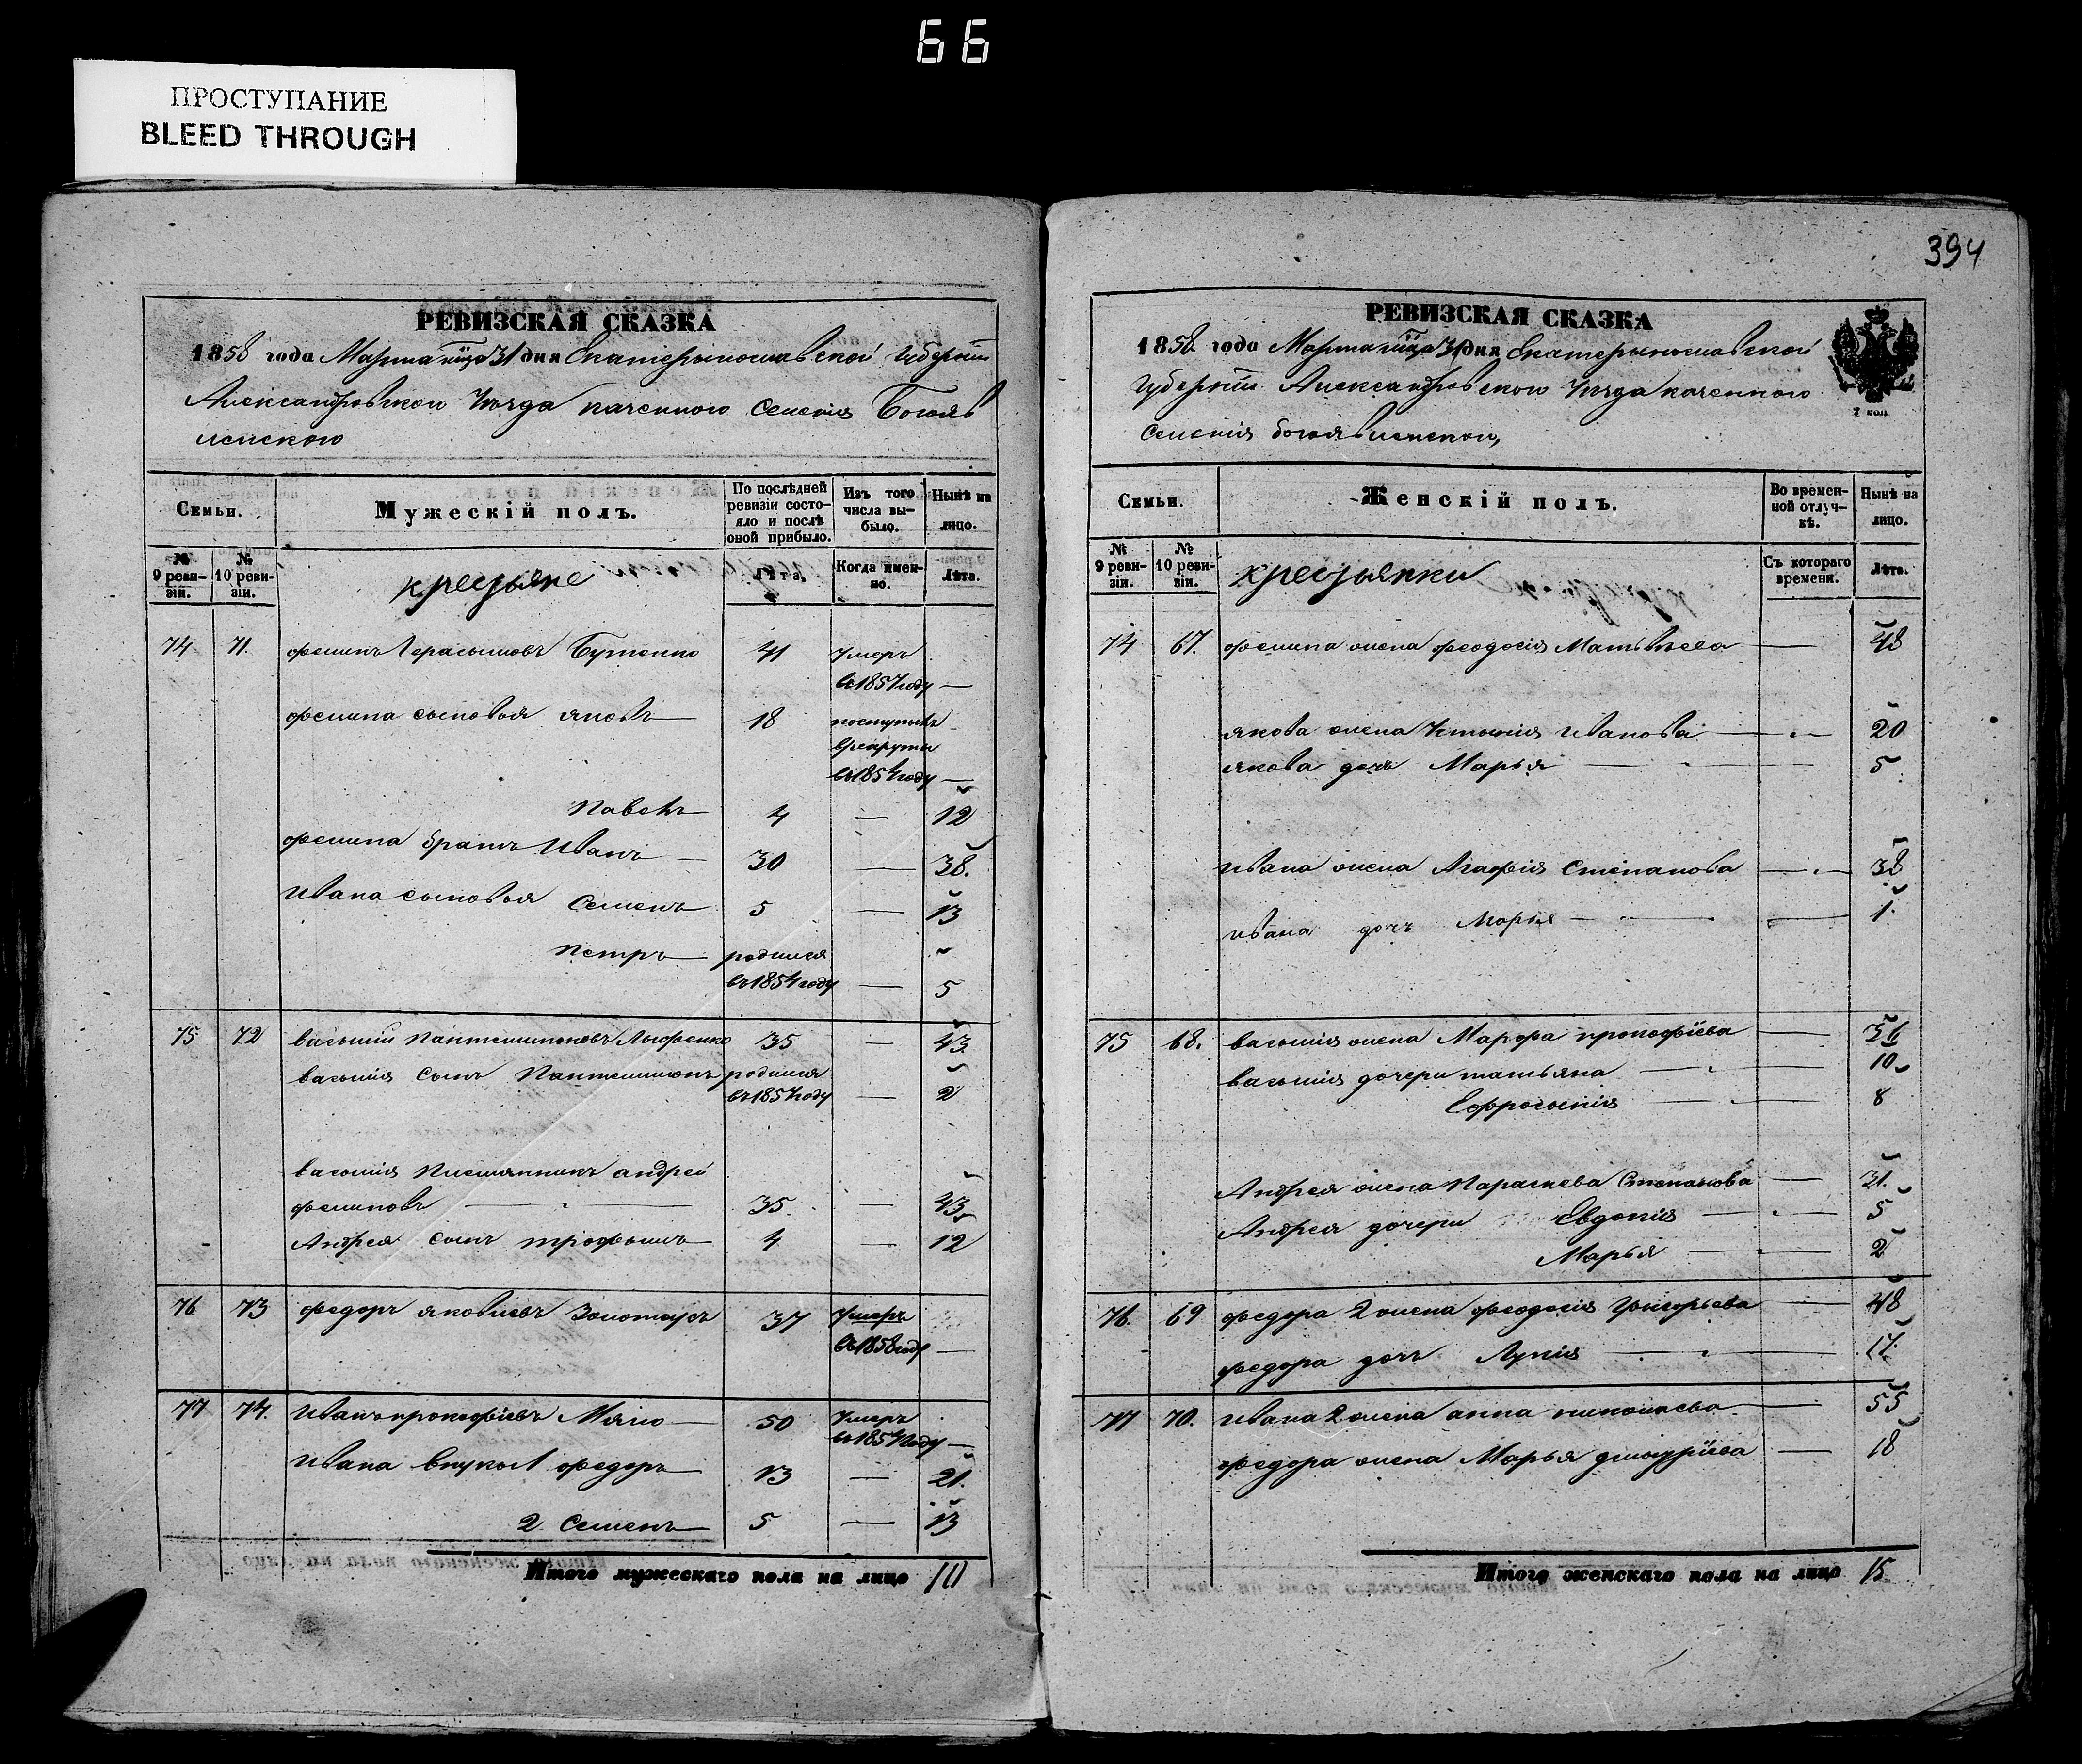 66
ПРОСТУПАНИЕ
BLEED THROUGH
394
РЕВИЗСКАЯ СКАЗКА
1858 года Марта м͞ца 31 дня Екатериославской губерніи
Александровскои Уѣзда казенного селенія Богояв
ленского
Семьи.
Мужескій полъ.
По послѣдней ревизіи состояло и послѣ оной прибыло.
Изъ того числа выбыло.
Нынѣ на лицо.
№ 9 ревизіи.
№ 10 ревизіи.
крестьяне
Лѣта.
Когда именно.
Лѣта.
74 71. филипъ Герасимовъ Бутенко 41 Умеръ
въ 1857 году —
филипа сыновья яковъ — 18 поступилъ
врекруты
въ 1854 году —
Павелъ — 4 — 12
филипа братъ Иванъ — 30 — 38.
Ивана сыновья Семенъ 5 — 13
Петръ — родился
въ 1854 году — 5
75 72 василий Пантелимоновъ 35 — 43
василія сынъ Пантелимонъ родился
въ 1857 году — 2
василія племянникъ андрей
филиповъ — 35. — 43
Андрея сынъ трофимъ — 4 — 12
76 73 федоръ яковлевъ 37 Умеръ
въ 1858 году —
77 74. Иванъ прокофіевъ Мяло — 50 Умеръ
въ 1857 году —
Ивана внуки 1 федоръ — 13 — 21.
2 Семенъ — 5 — 13
Итого мужескаго пола на лицо 10
РЕВИЗСКАЯ СКАЗКА
1858 года Марта м͞ца 31 дня Екатериославской
губерніи Александровскои Уѣзда казенного
селенія богоявленскои,
7 коп
Семьи.
Женскій полъ.
Во временной отлучкѣ.
Нынѣ на лицо.
№ 9 ревизіи.
№ 10 ревизіи.
крестьянки
Съ котораго времени.
Лѣта.
74 67. филипа жена феодосія Матвѣева — 48
якова жена Устинія Иванова — 20
якова дочь Марья — 5
Ивана жена Агафія Степанова — 38
Ивана дочъ Марья — 1.
75 68. василія жена Марфа прокофіева — 36
василія дочери татьяна — 10
Ефросинія — 8
Андрея жена Параскева Степанова — 31.
Андрея дочери Евдокія — 5
Марья — 2
76. 69 федора 2 жена феодосія Григорьева — 48
федора дочъ Лукія — 17.
77 70. Ивана 2 жена анна николаева — 55
федора жена Марья дмитріева — 18
Итого женскаго пола на лицо 15